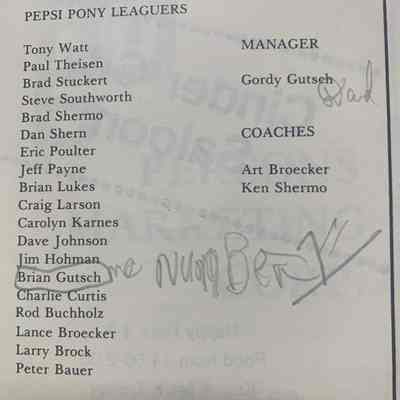 PEPSI PONY LEAGUERS
Tony Watt
Paul Theisen
Brad Stuckert
Steve Southworth
Brad Shermo
Dan Shern
Eric Poulter
Jeff Payne
Brian Lukes
Craig Larson
Carolyn Karnes
Dave Johnson
Jim Hohman
Brian Gutsch me
Charlie Curtis
Rod Buchholz
Lance Broecker
Larry Brock
Peter Bauer
MANAGER
Gordy Gutsch Dad
COACHES
Art Broecker
Ken Shermo